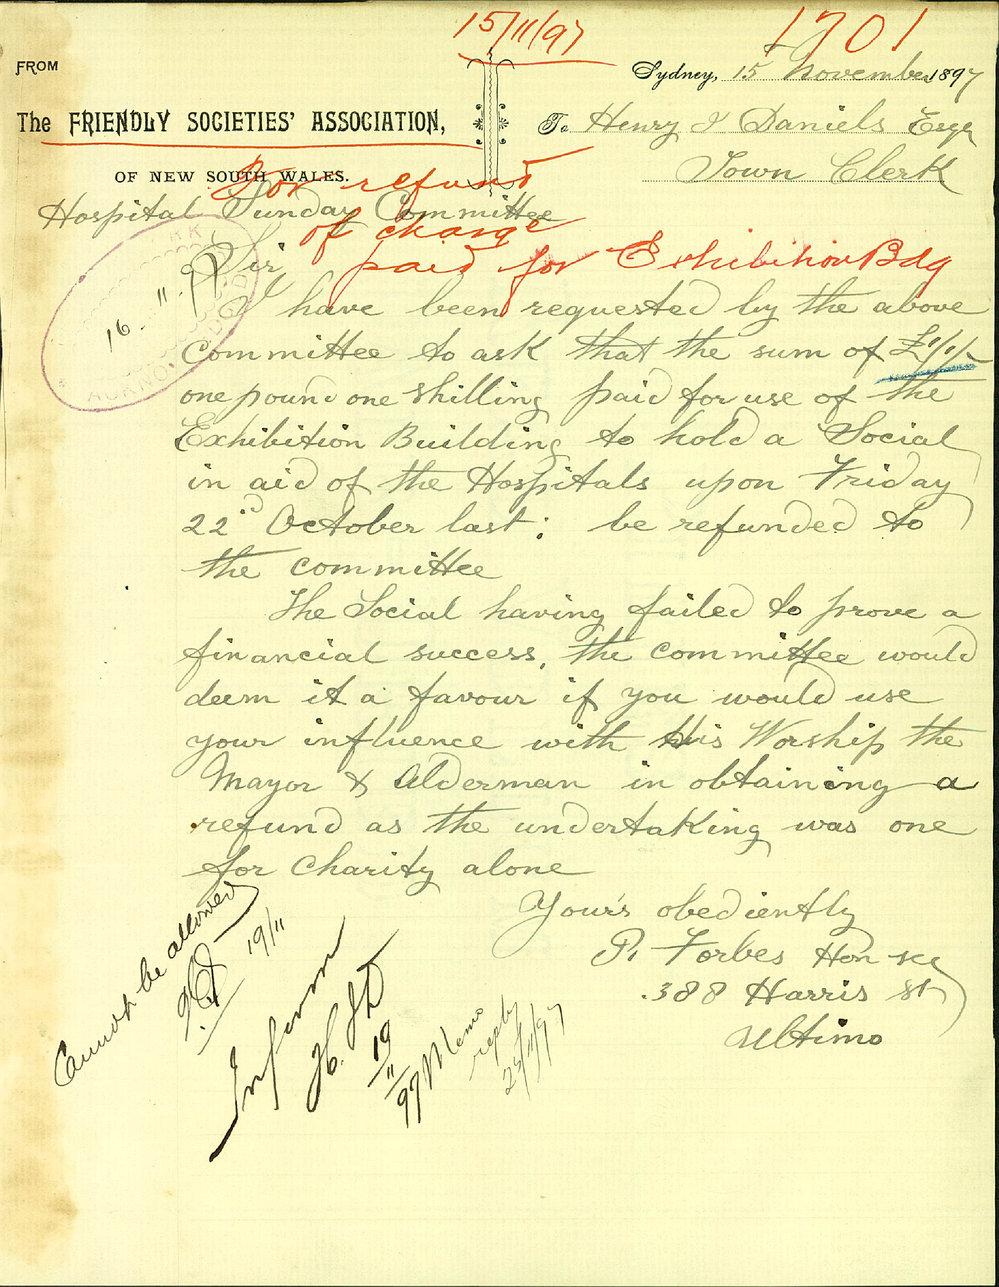 15/11/97
1701
FROM
Sydney, 15th November 1897
The FRIENDLY SOCIETIES' ASSOCIATION,
To Henry J Daniels Esqr
OF NEW SOUTH WALES.
Town Clerk
For refund
of charge
paid for Exhibition Bdg
Hospital Sunday Committee
16 11 97
Sir
I have been requested by the above
Committee to ask that the sum of £1/1/-
one pound one shilling paid for use of the
Exhibition Building to hold a Social
in aid of the Hospitals upon Friday
22nd October last; be refunded to
the committee
The Social having failed to prove a
financial success, the committee would
deem it a favour if you would use
your influence with His Worship the
Mayor & Alderman in obtaining a
refund as the undertaking was one
for Charity alone
Your's obediently
P. Forbes Hon sec
388 Harris St
Ultimo
Cannot be allowed
19/11
Inform
H.J.D
19/11/97
Memo
reply
25/11/97